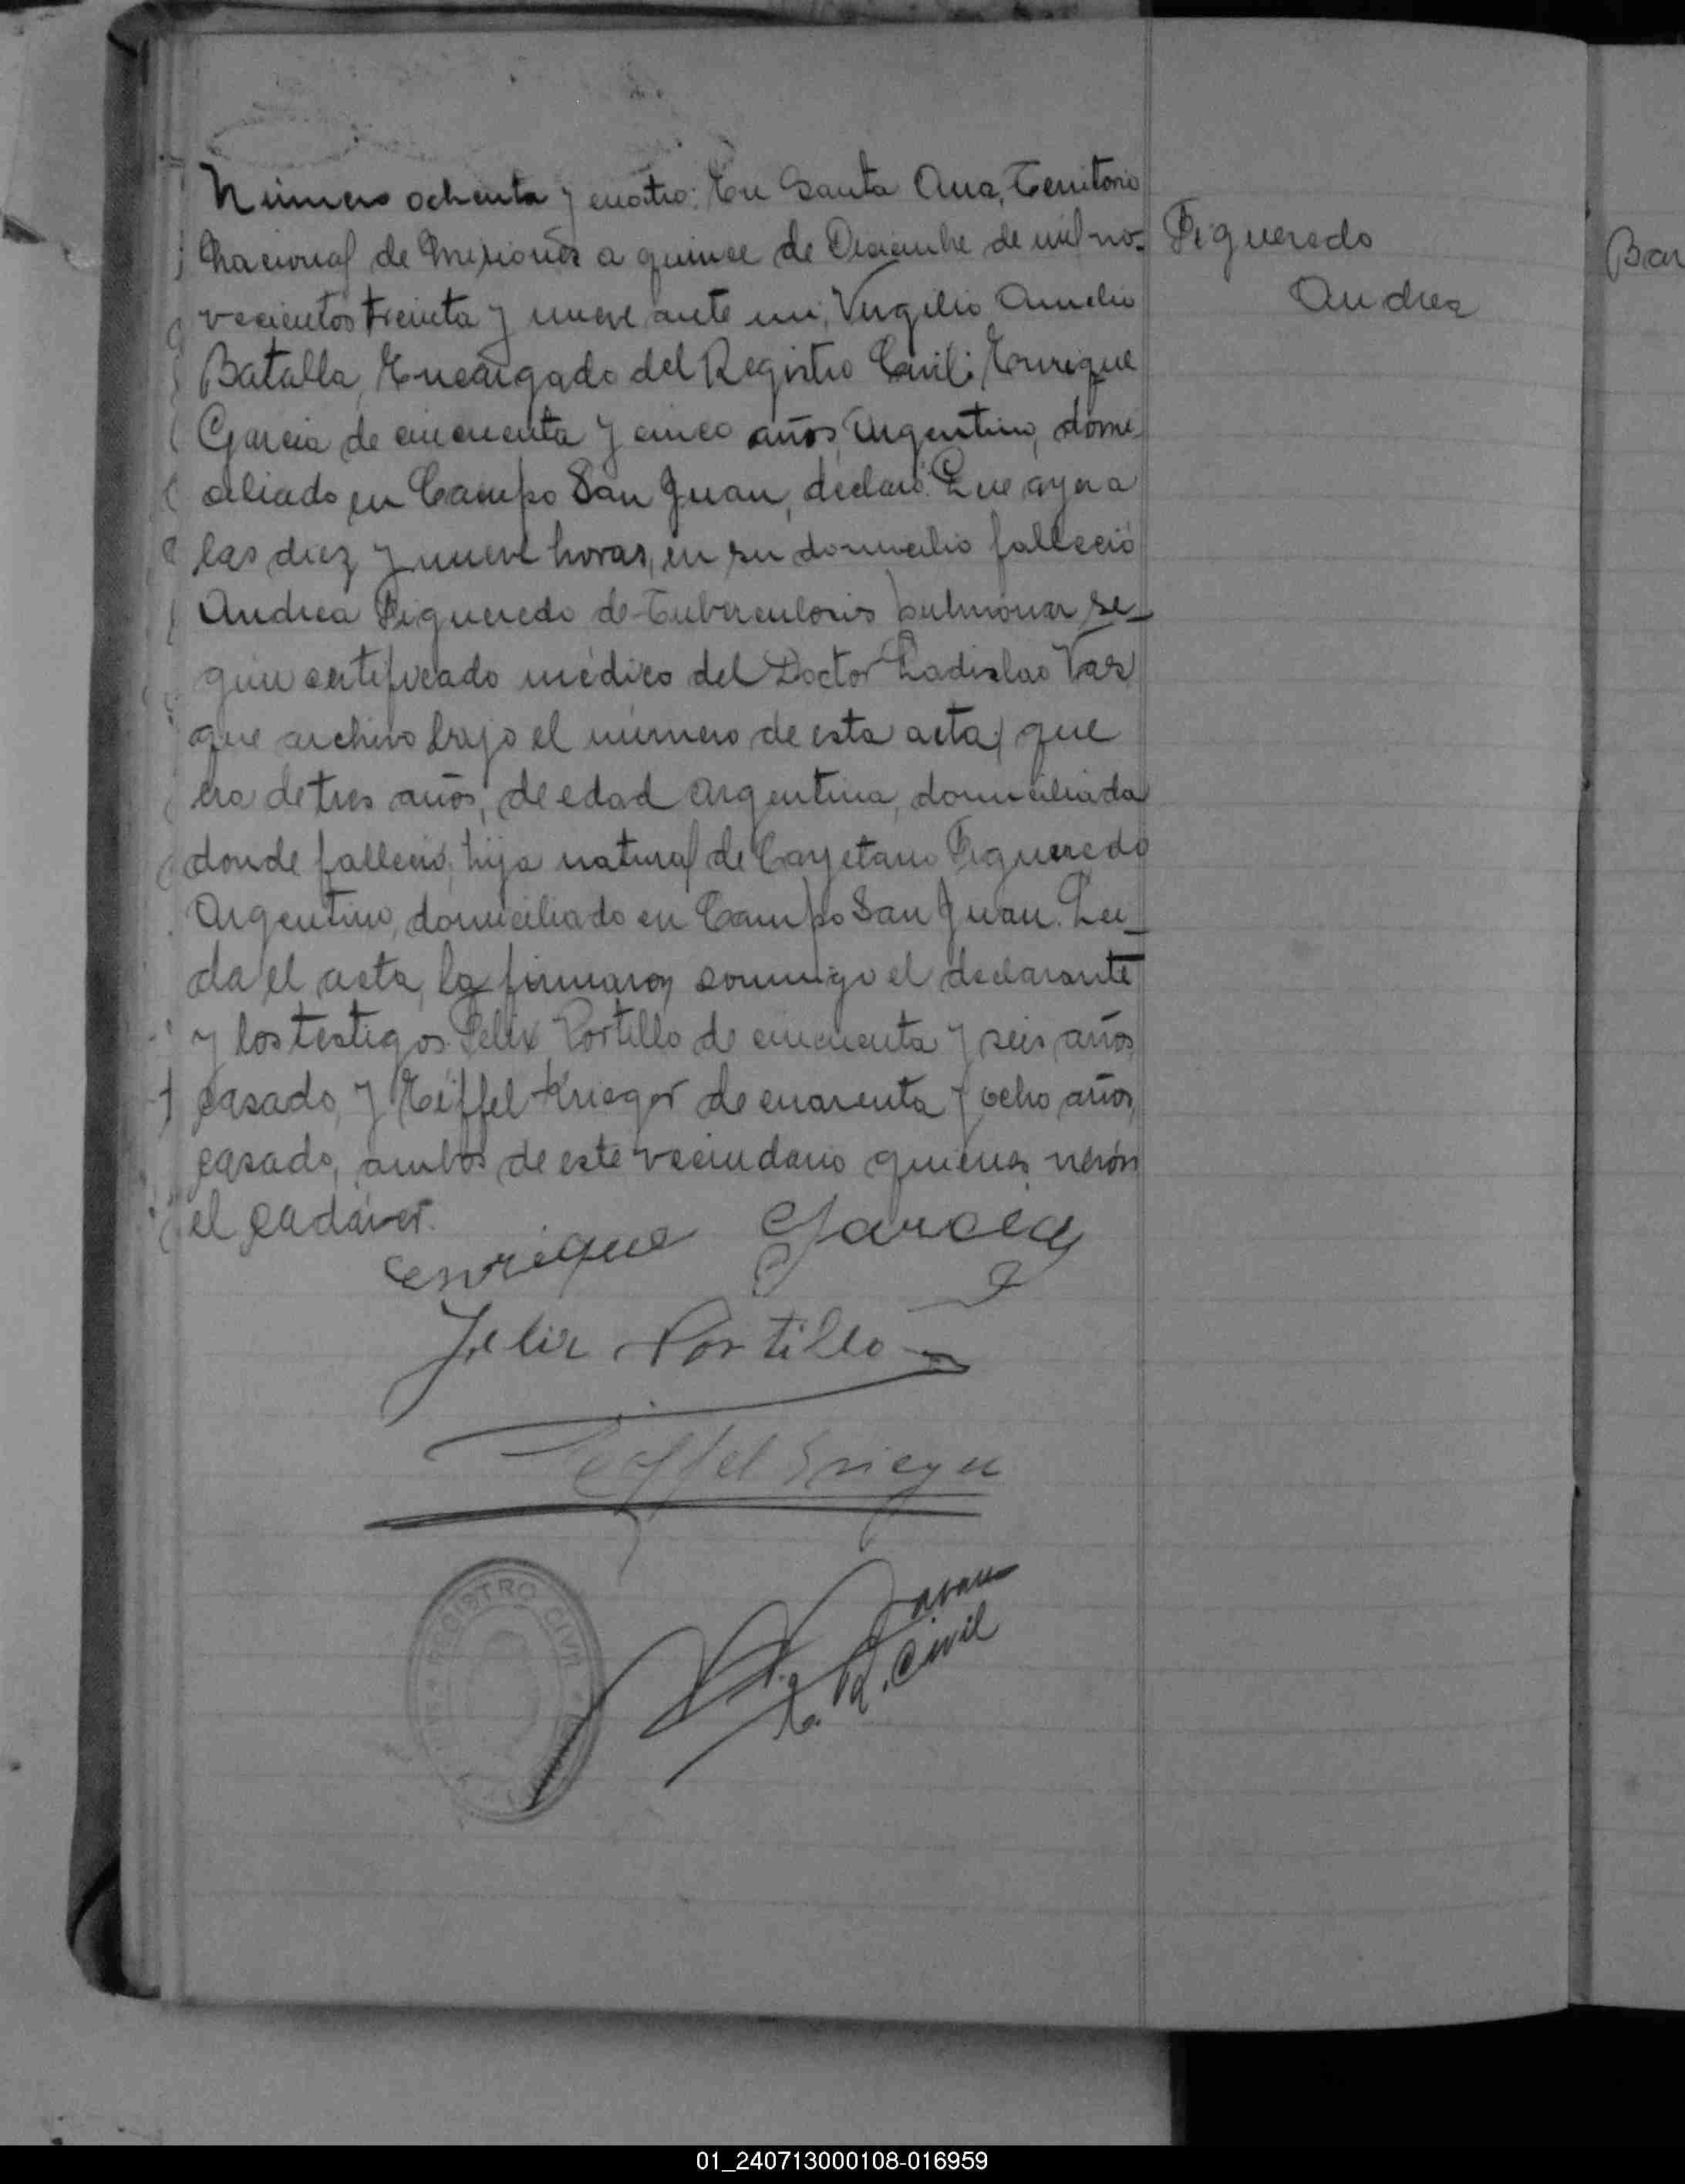 Número ochenta y cuatro: En Santa Ana, Territorio
Nacional de Misiones a quince de Diciembre de mil no-
vecientos treinta y nueve ante mi, Virgilio Amelio
Batalla, Encargado del Registro Civil: Enrique
Garcia de cincuenta y cinco años, Argentino, domi
ciliado en Campo San Juan, declaró: Que ayer a
las diez y nueve horas, en su domicilio falleció
Andrea Figueredo de Tuberculosis pulmonar se-
gún certificado médico del Doctor Ladislao Vaz
que archivo bajo el número de esta acta, que
era de tres años, de edad Argentina, domiciliada
donde falleció, hija natural de Cayetano Figueredo
Argentino, domiciliado en Campo San Juan. Lei-
da el acta, la firmaron conmigo el declarante
y los testigos Felix Portillo de cincuenta y seis años,
casado, y Eiffel Krieger de cuarenta y ocho años,
casado, ambos de este vecindario quienes verón
el cadáver.
Figueredo
Andrea
Bar
Enrique Garcia
Felix Portillo
Eiffel Krieger
REGISTRO CIVIL
E. R. Civil
01_240713000108-016959